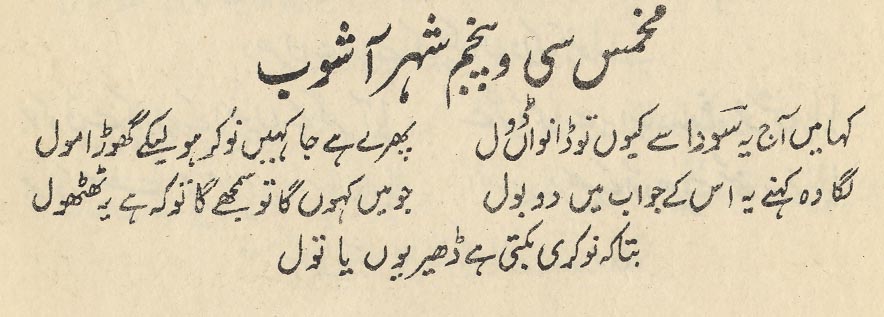 مخمس سی و پنجم شہر آشوب
کہا میں آج یہ سودا سے کیوں تو ڈانواں ڈول پھرے ہے جا کہیں نوکر ہو لیکے گھوڑا مول
لگا وہ کہنے یہ اس کے جواب میں دو بول جو میں کہوں گا تو سمجھے گا تو کہ ہے یہ ٹھٹھول
بتا کہ نوکری بکتی ہے ڈھیریوں یا تول